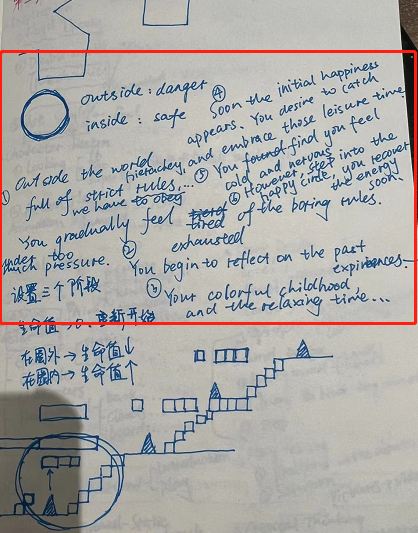 outside : danger
inside : safe
① Outside the world
full of strict rules, hierarchey, ...
we have to obey
You gradually feel tired of the boring rules.
under too much pressure.
② exhausted
You begin to reflect on the past expirences.
③ Your colorful childhood,
and the relaxing time...
④ Soon the initial happiness
appears. You desire to catch
and embrace those leisure time.
⑤ You found find you feel
cold and nervous
⑥ However, step into the
happy circle, you recover
the energy
soon.
设置三个阶段
生命值→0. 重新开始
在圈外→生命值↓
在圈内→生命值↑